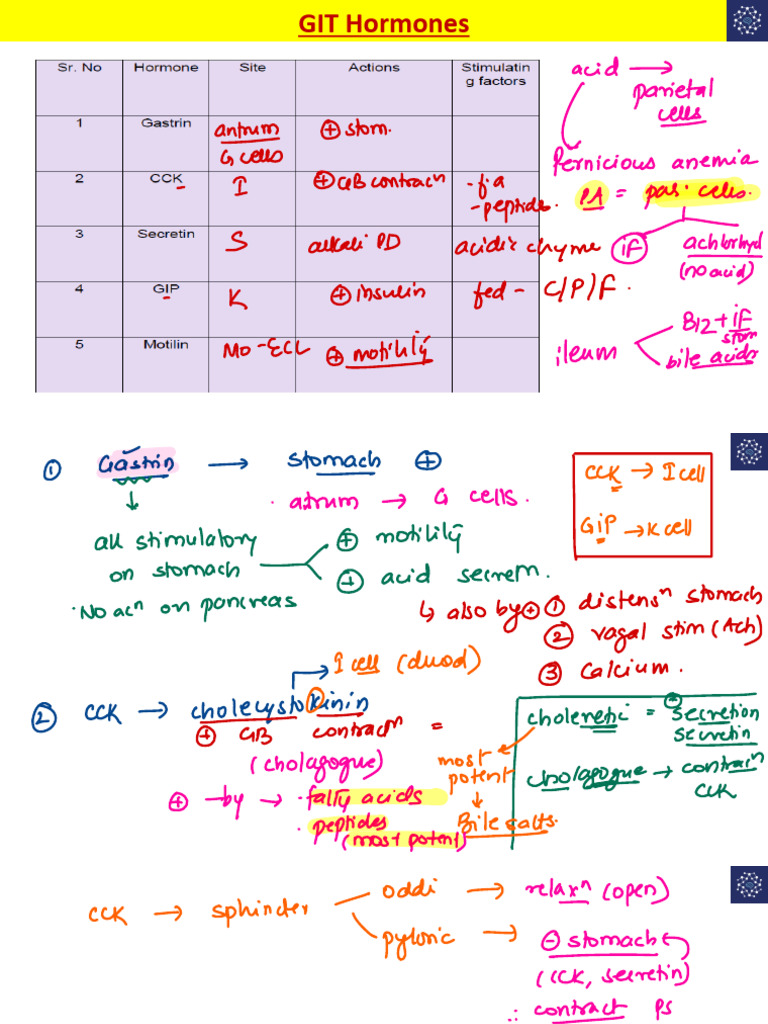 GIT Hormones
Sr. No Hormone Site Actions Stimulatin
g factors
1 Gastrin antrum G cells ⊕ stom.
2 CCK I ⊕ GB contracⁿ - f.a - peptide.
3 Secretin S alkali PD acidic chyme
4 GIP K ⊕ insulin fed - C/P/F.
5 Motilin Mo-ECL ⊕ motility
acid → parietal
cells
Pernicious anemia
PA = par. cells.
if achlorhyd
(no acid)
ileum B12 + if
stom
bile acids
① Gastrin → stomach ⊕
. atrum → G cells.
all stimulatory
on stomach
⊕ motility
⊕ acid secrem.
. No acⁿ on pancreas
↳ also by ⊕ ① distensⁿ stomach
② vagal stim (Ach)
③ calcium.
CCK → I cell
GiP → K cell
I cell (duod)
② CCK → cholecystokinin
⊕ GB contracⁿ =
(cholagogue)
⊕ -by → . fatty acids
. peptides
(most potent)
choleretic = ⊕ secretion
secretin
cholagogue → contracⁿ
CCK
most
potent
↓
Bile salts.
CCK → sphincter
oddi → relaxⁿ (open)
pyloric → ⊖ stomach
(CCK, secretin)
∴ contract PS